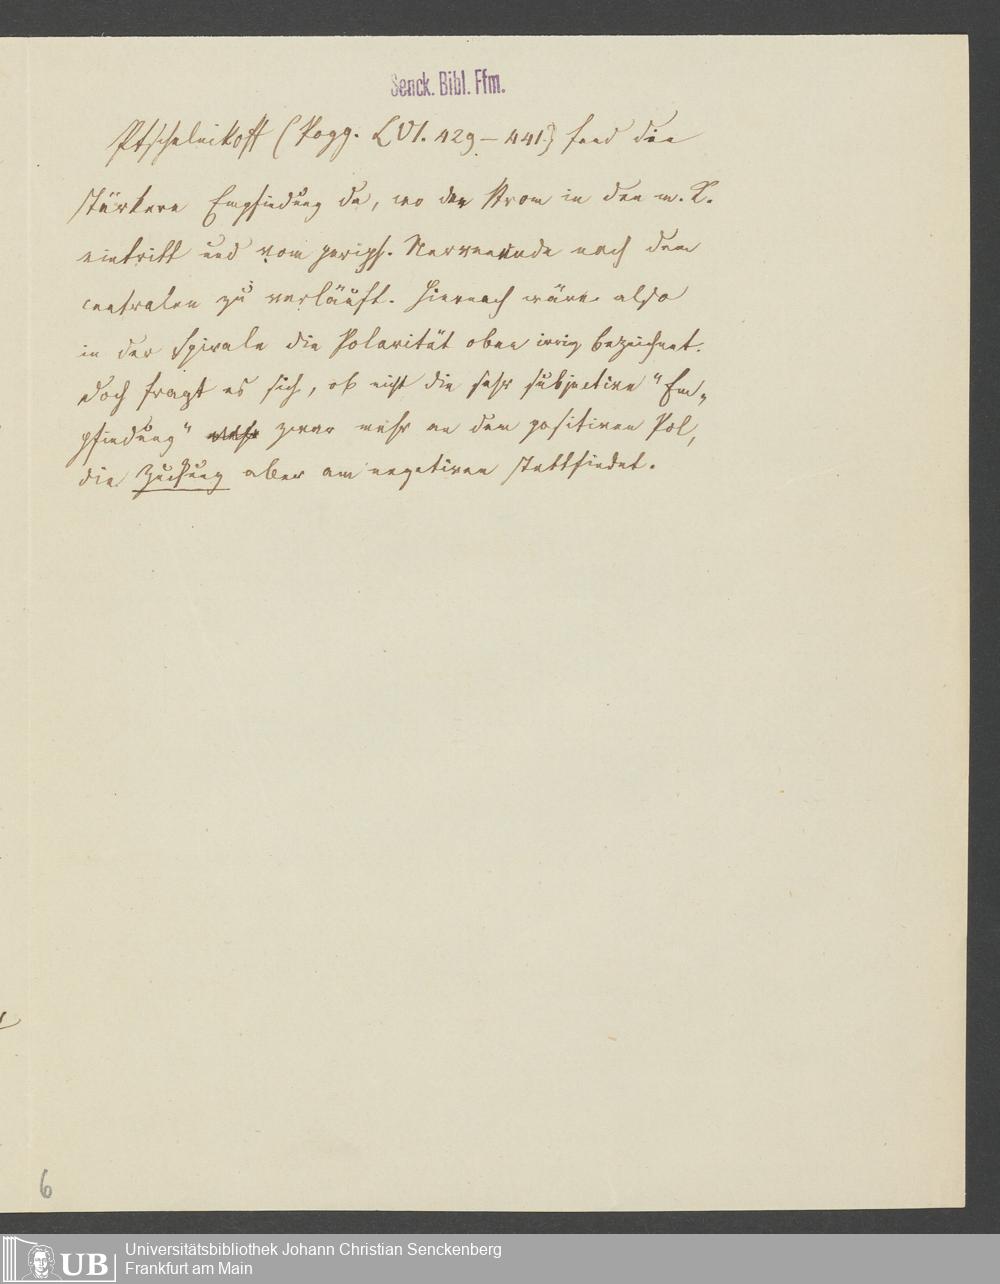 Senck. Bibl. Ffm.
Ptschelnikoff (Pogg. LVI. 429–441) fand die
stärkere Empfindung da, wo der Strom in den m. K.
eintritt und vom periph. Nervenende nach dem
centralen zu verläuft. Hiernach wäre also
in der Spirale die Polarität oben irrig bezeichnet.
Doch fragt es sich, ob nicht die sehr subjective "Em„
pfindung" zwar mehr an dem positiven Pol,
die Zuckung aber am negativen stattfindet.
6
UB
Universitätsbibliothek Johann Christian Senckenberg
Frankfurt am Main